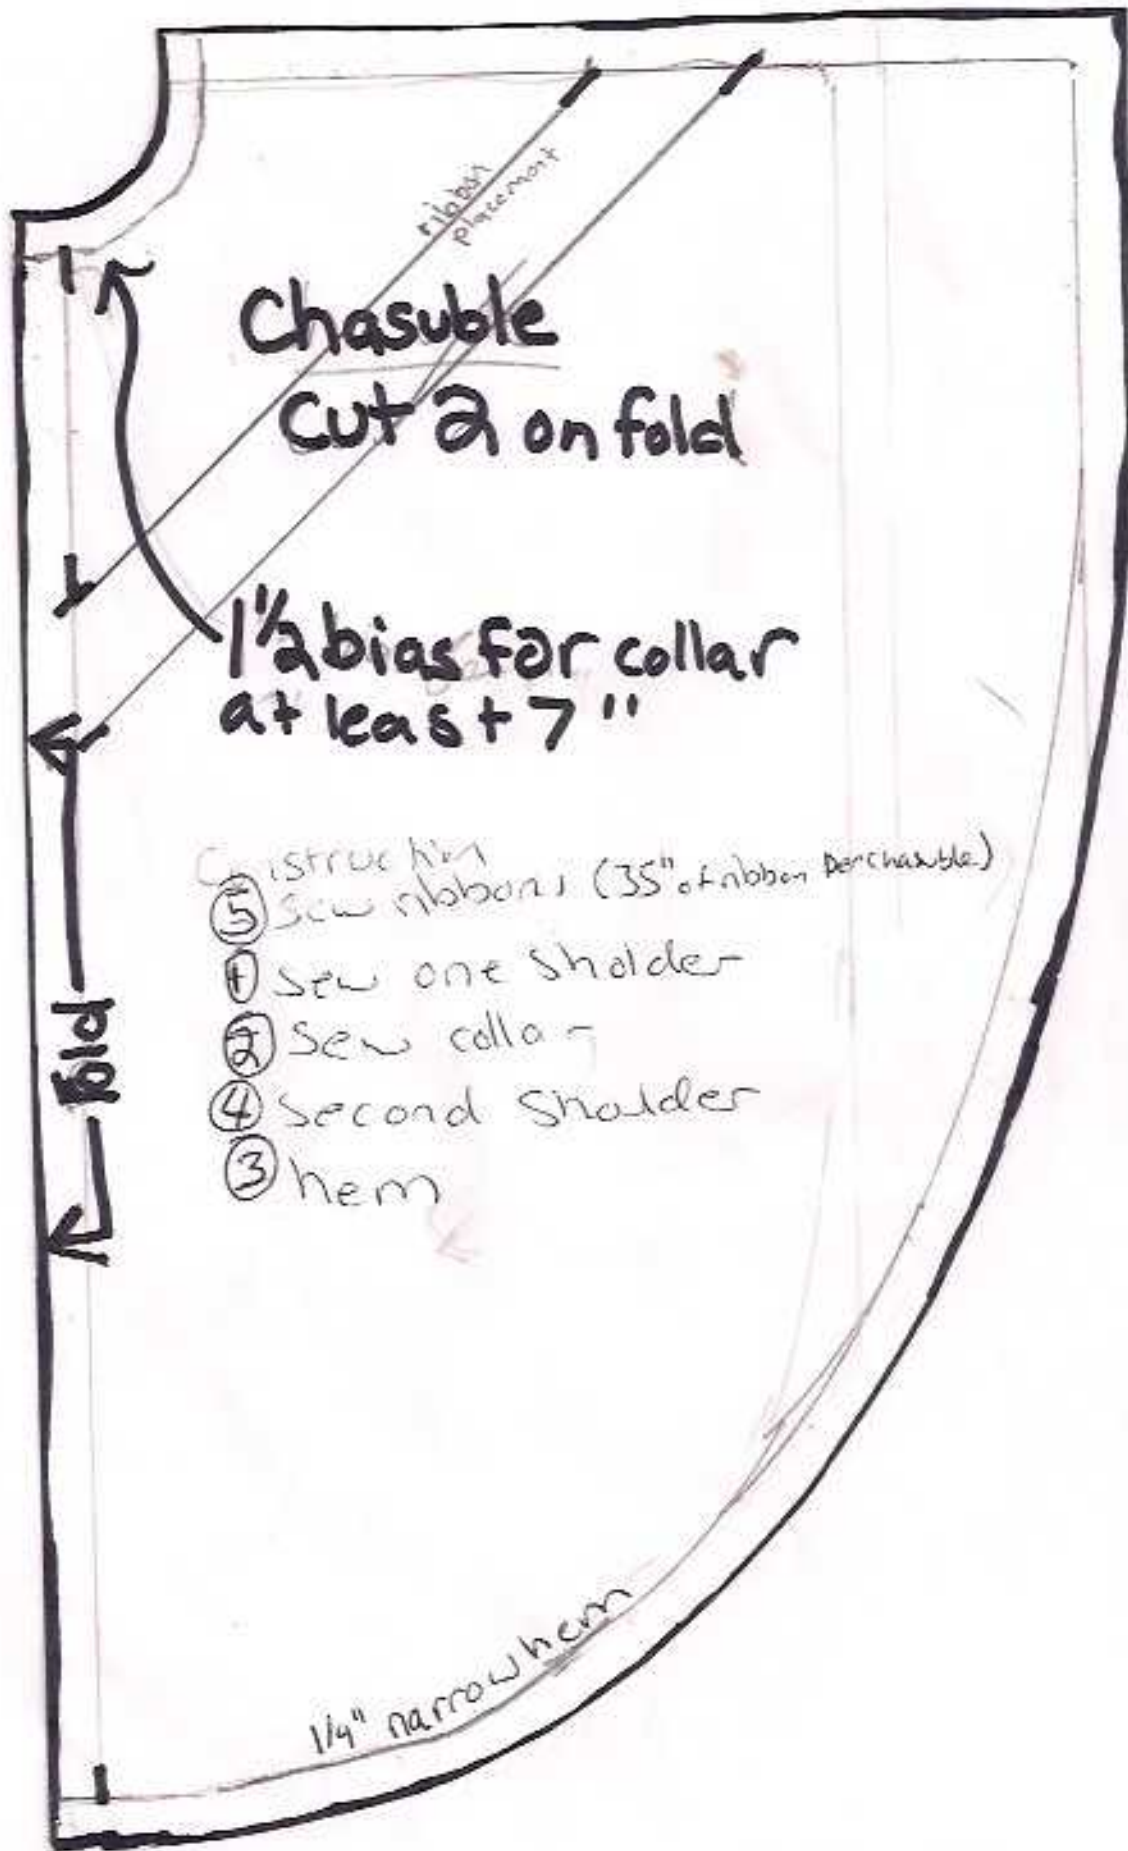 ribbon
placement
Chasuble
Cut 2 on fold
1 1/2 bias for collar
at least 7"
Construction
⑤ Sew ribbons (35" of ribbon per chasuble)
① Sew one sholder
② Sew collar
④ Second Sholder
③ hem
Fold
1/4" narrow hem